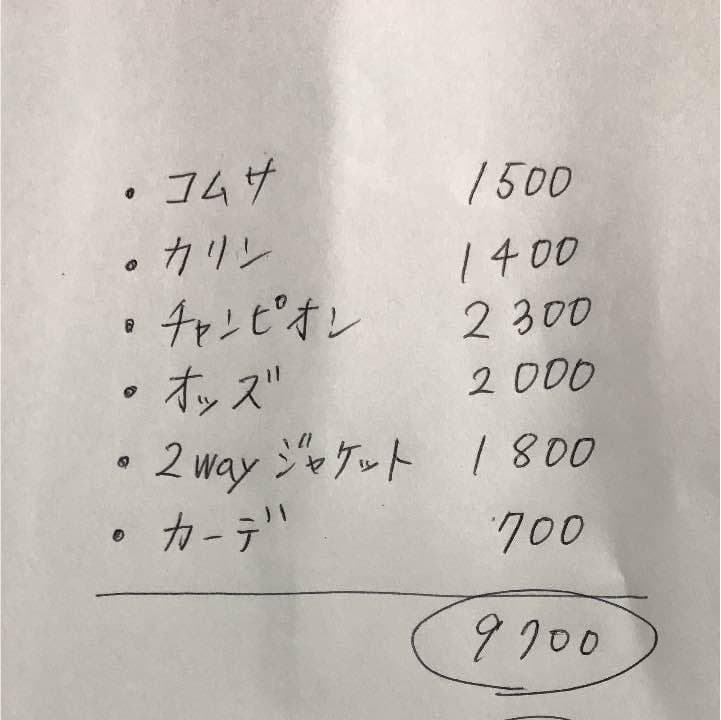 ・コムサ 1500
・カリン 1400
・チャンピオン 2300
・オッズ 2000
・2wayジャケット 1800
・カーデ 700
9700